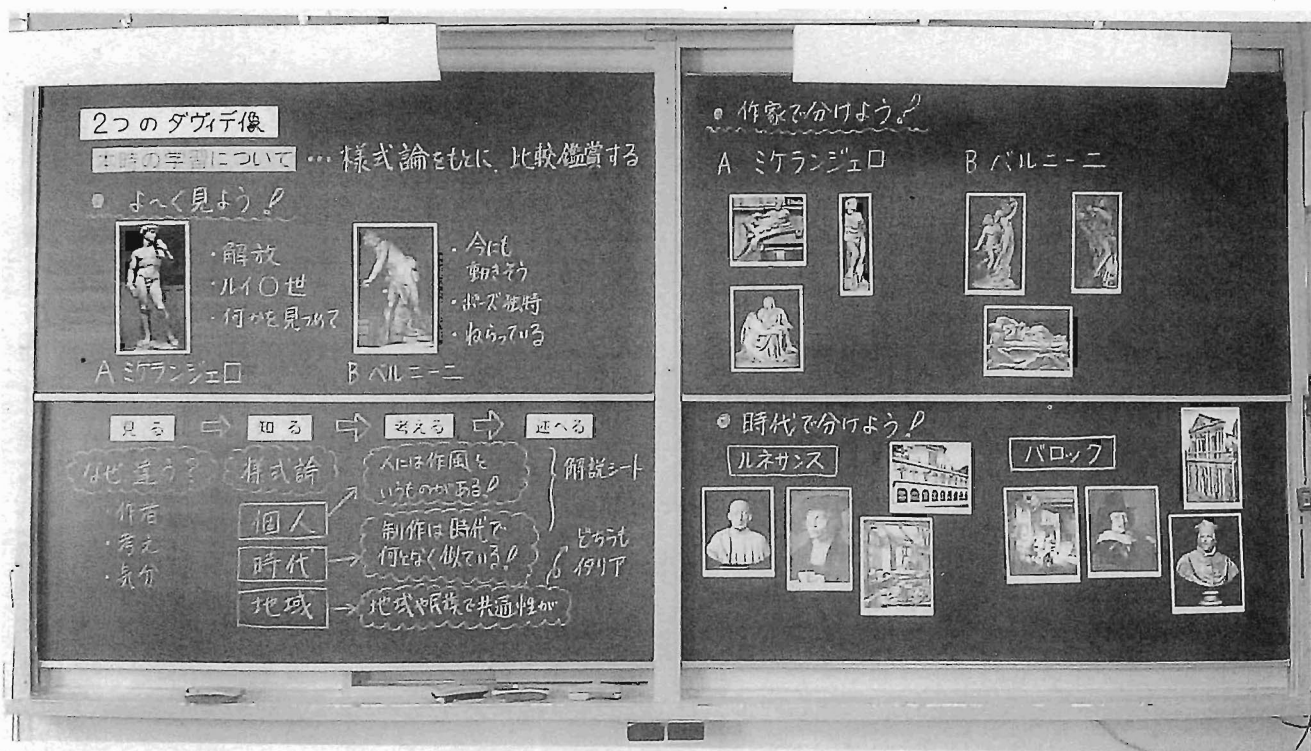 2つのダヴィデ像
本時の学習について … 様式論をもとに、比較鑑賞する
● よ〜く見よう!
・解放
・ルイ〇世
・何かを見つめて
A ミケランジェロ
・今にも
動きそう
・ポーズ独特
・ねらっている
B ベルニーニ
見る ⇨ 知る ⇨ 考える ⇨ 述べる
なぜ違う?
・作者
・考え
・気分
様式論
個人
時代
地域
人には作風と
いうものがある!
制作は時代で
何となく似ている!
地域や民族で共通性が
解説シート
どちらも
イタリア
● 作家で分けよう!
A ミケランジェロ
B ベルニーニ
● 時代で分けよう!
ルネサンス
バロック